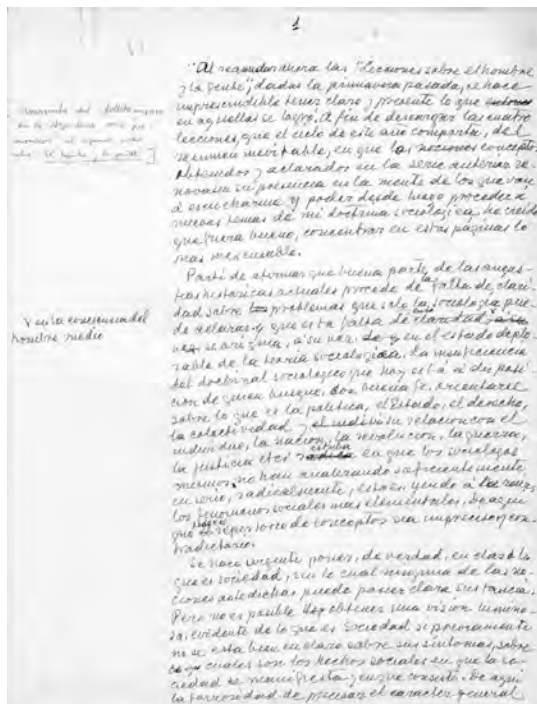 1
"Al reanudar ahora las "Lecciones sobre el hombre
y la gente", dadas la primavera pasada, se hace
imprescindible tener claro y presente lo que
en aquellas se logró. A fin de descargar las cuatro
lecciones, que el ciclo de este año comporta, del
resumen inevitable, en que las nociones conceptos
obtenidos y aclarados en la serie anterior re-
novasen su presencia en la mente de los que van
a escucharme y poder desde luego proceder a
nuevos temas de mi doctrina sociológica, he creído
que fuera bueno, concentrar en estas páginas lo
más inexcusable.
Partí de afirmar que buena parte de las angus-
tias históricas actuales procede de la falta de clari-
dad sobre problemas que sólo la sociología pue-
de aclarar, y que esta falta de claridad
se origina, a su vez, en el estado deplo-
rable de la teoría sociológica. La insuficiencia
del doctrinal sociológico que hoy está a disposi-
ción de quien busque, con buena fe, orientarse
sobre lo que es la política, el Estado, el derecho,
la colectividad y su relación con el
individuo, la nación, la revolución, la guerra,
la justicia etc. estriba en que los sociólogos
mismos no han analizado suficientemente
en serio, radicalmente, esto es, yendo a la raíz,
los fenómenos sociales más elementales. De aquí
que repertorio de conceptos sea impreciso y con-
tradictorio.
Se hace urgente poner, de verdad, en claro lo
que es sociedad, sin lo cual ninguna de las no-
ciones antedichas puede poseer clara sustancia.
Pero no es posible obtener una visión lumino-
sa, evidente de lo que es sociedad si previamente
no se está bien en claro sobre sus síntomas, sobre
cuáles son los hechos sociales en que la so-
ciedad se manifiesta y en que consiste. De aquí
la forzosidad de precisar el carácter general
y en la conciencia del
hombre medio